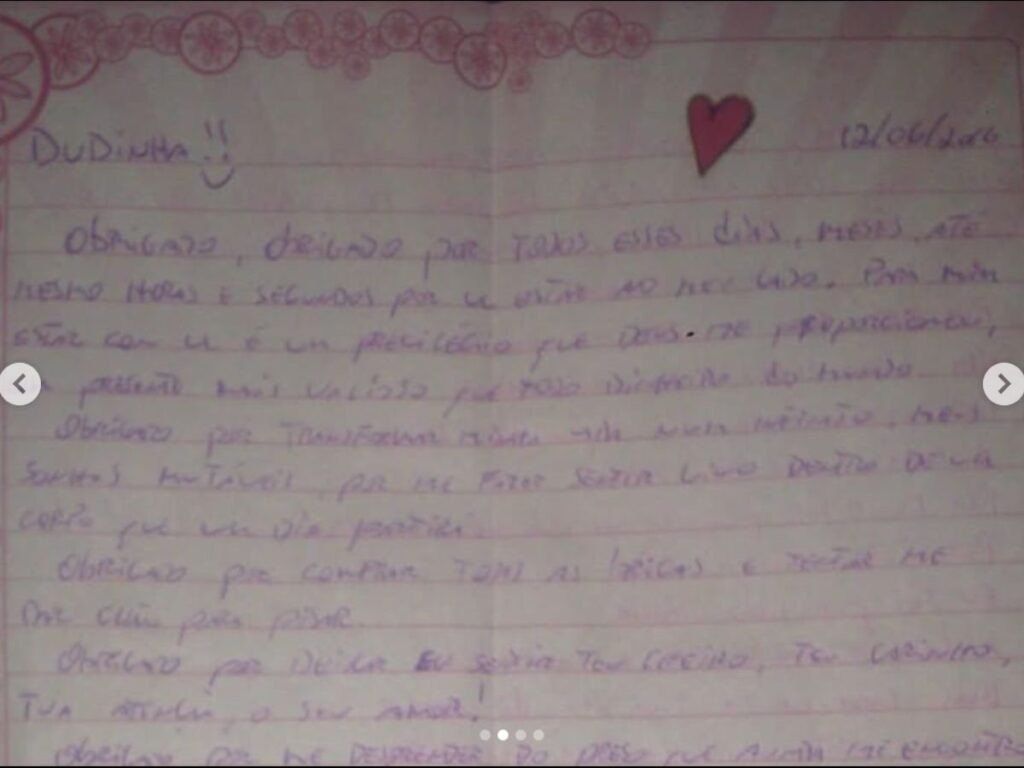 DUDINHA!!
12/06/2016
OBRIGADO, OBRIGADO POR TODOS ESSES DIAS, MESES, ATÉ
MESMO HORAS E SEGUNDOS POR VC ESTAR AO MEU LADO. PARA MIM
ESTAR COM VC É UM PRIVILÉGIO QUE DEUS ME PROPORCIONOU,
PRESENTE MAIS VALIOSO QUE TODO DINHEIRO DO MUNDO
OBRIGADO POR TRANSFORMAR MINHA VIDA NUM INFINITO, MEUS
SONHOS POR ME FAZER SENTIR VIVO DENTRO DE UM
CORPO QUE UM DIA
OBRIGADO POR COMPRAR TODAS AS BRIGAS E TENTAR ME
DAR CHÃO PARA PISAR.
OBRIGADO POR DEIXAR EU SENTIR TEU CHEIRO, TEU CARINHO,
TUA O SEU AMOR!
OBRIGADO POR ME DESPRENDER DO QUE ME ENCONTRO